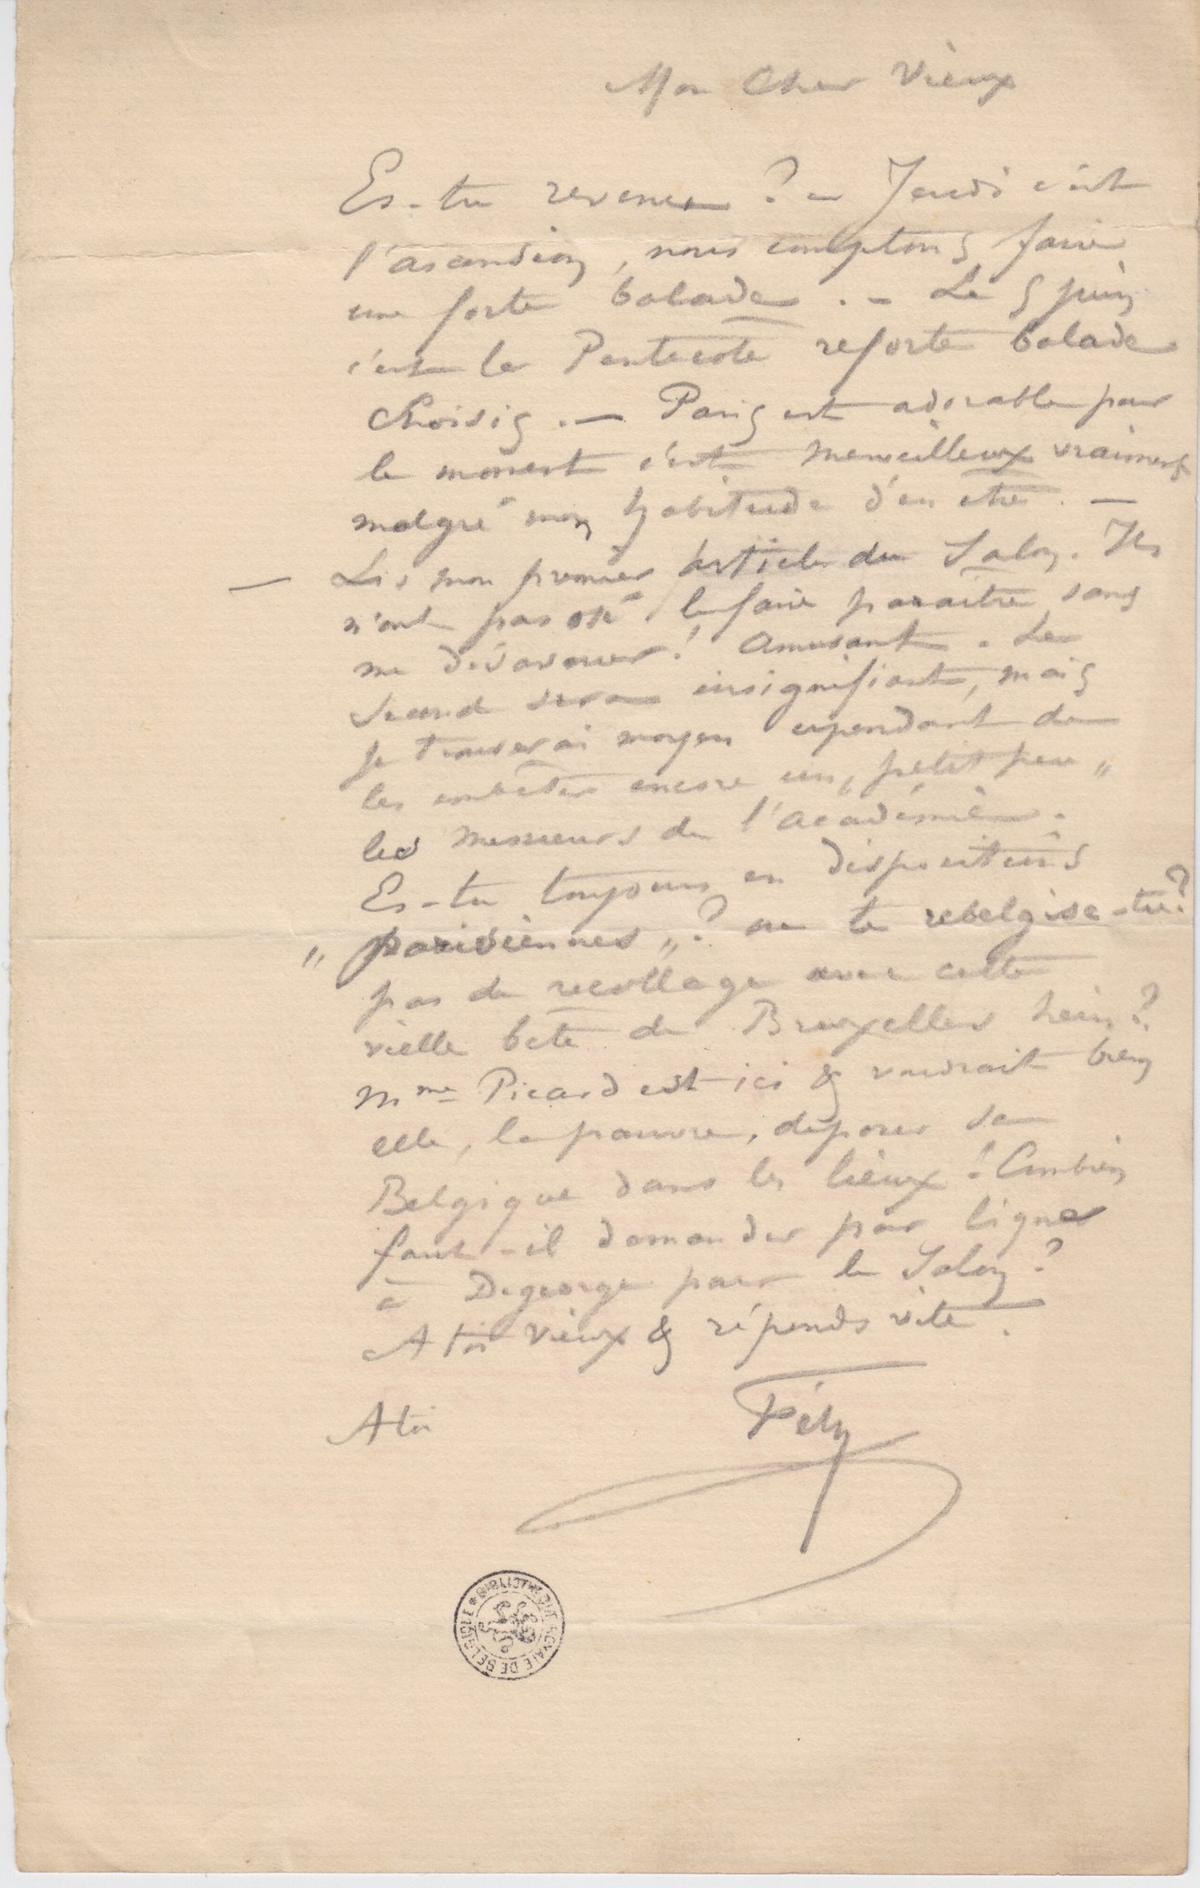 Mon Cher Vieux
Es-tu revenu ? – Jeudi c'est
l'ascension, nous comptons faire
une forte balade . – Le 5 juin
c'est la Pentecote reforte balade
Choisis . — Paris est adorable pour
le moment c'est merveilleux vraiment
malgré mon habitude d'en être . —
— Lis mon premier Article du Salon. Ils
n'ont pas osé le faire paraître sans
me désavouer ! Amusant . Le
second sera insignifiant, mais
je trouverai moyen cependant de
les embêter encore un „ petit peu „
les messieurs de l'Académie .
Es-tu toujours en dispositions
„ parisiennes „ ? ou te rebelgise-tu ?
pas de recollage avec cette
vielle bête de Bruxelles hein ?
Mme Picard est ici & voudrait bien
elle, la pauvre, déposer sa
Belgique dans les lieux ! Combien
faut-il demander par ligne
à Degeorge pour le Salon ?
A toi vieux & réponds vite .
A toi Fély
BIBLIOTHEQUE ROYALE DE BELGIQUE